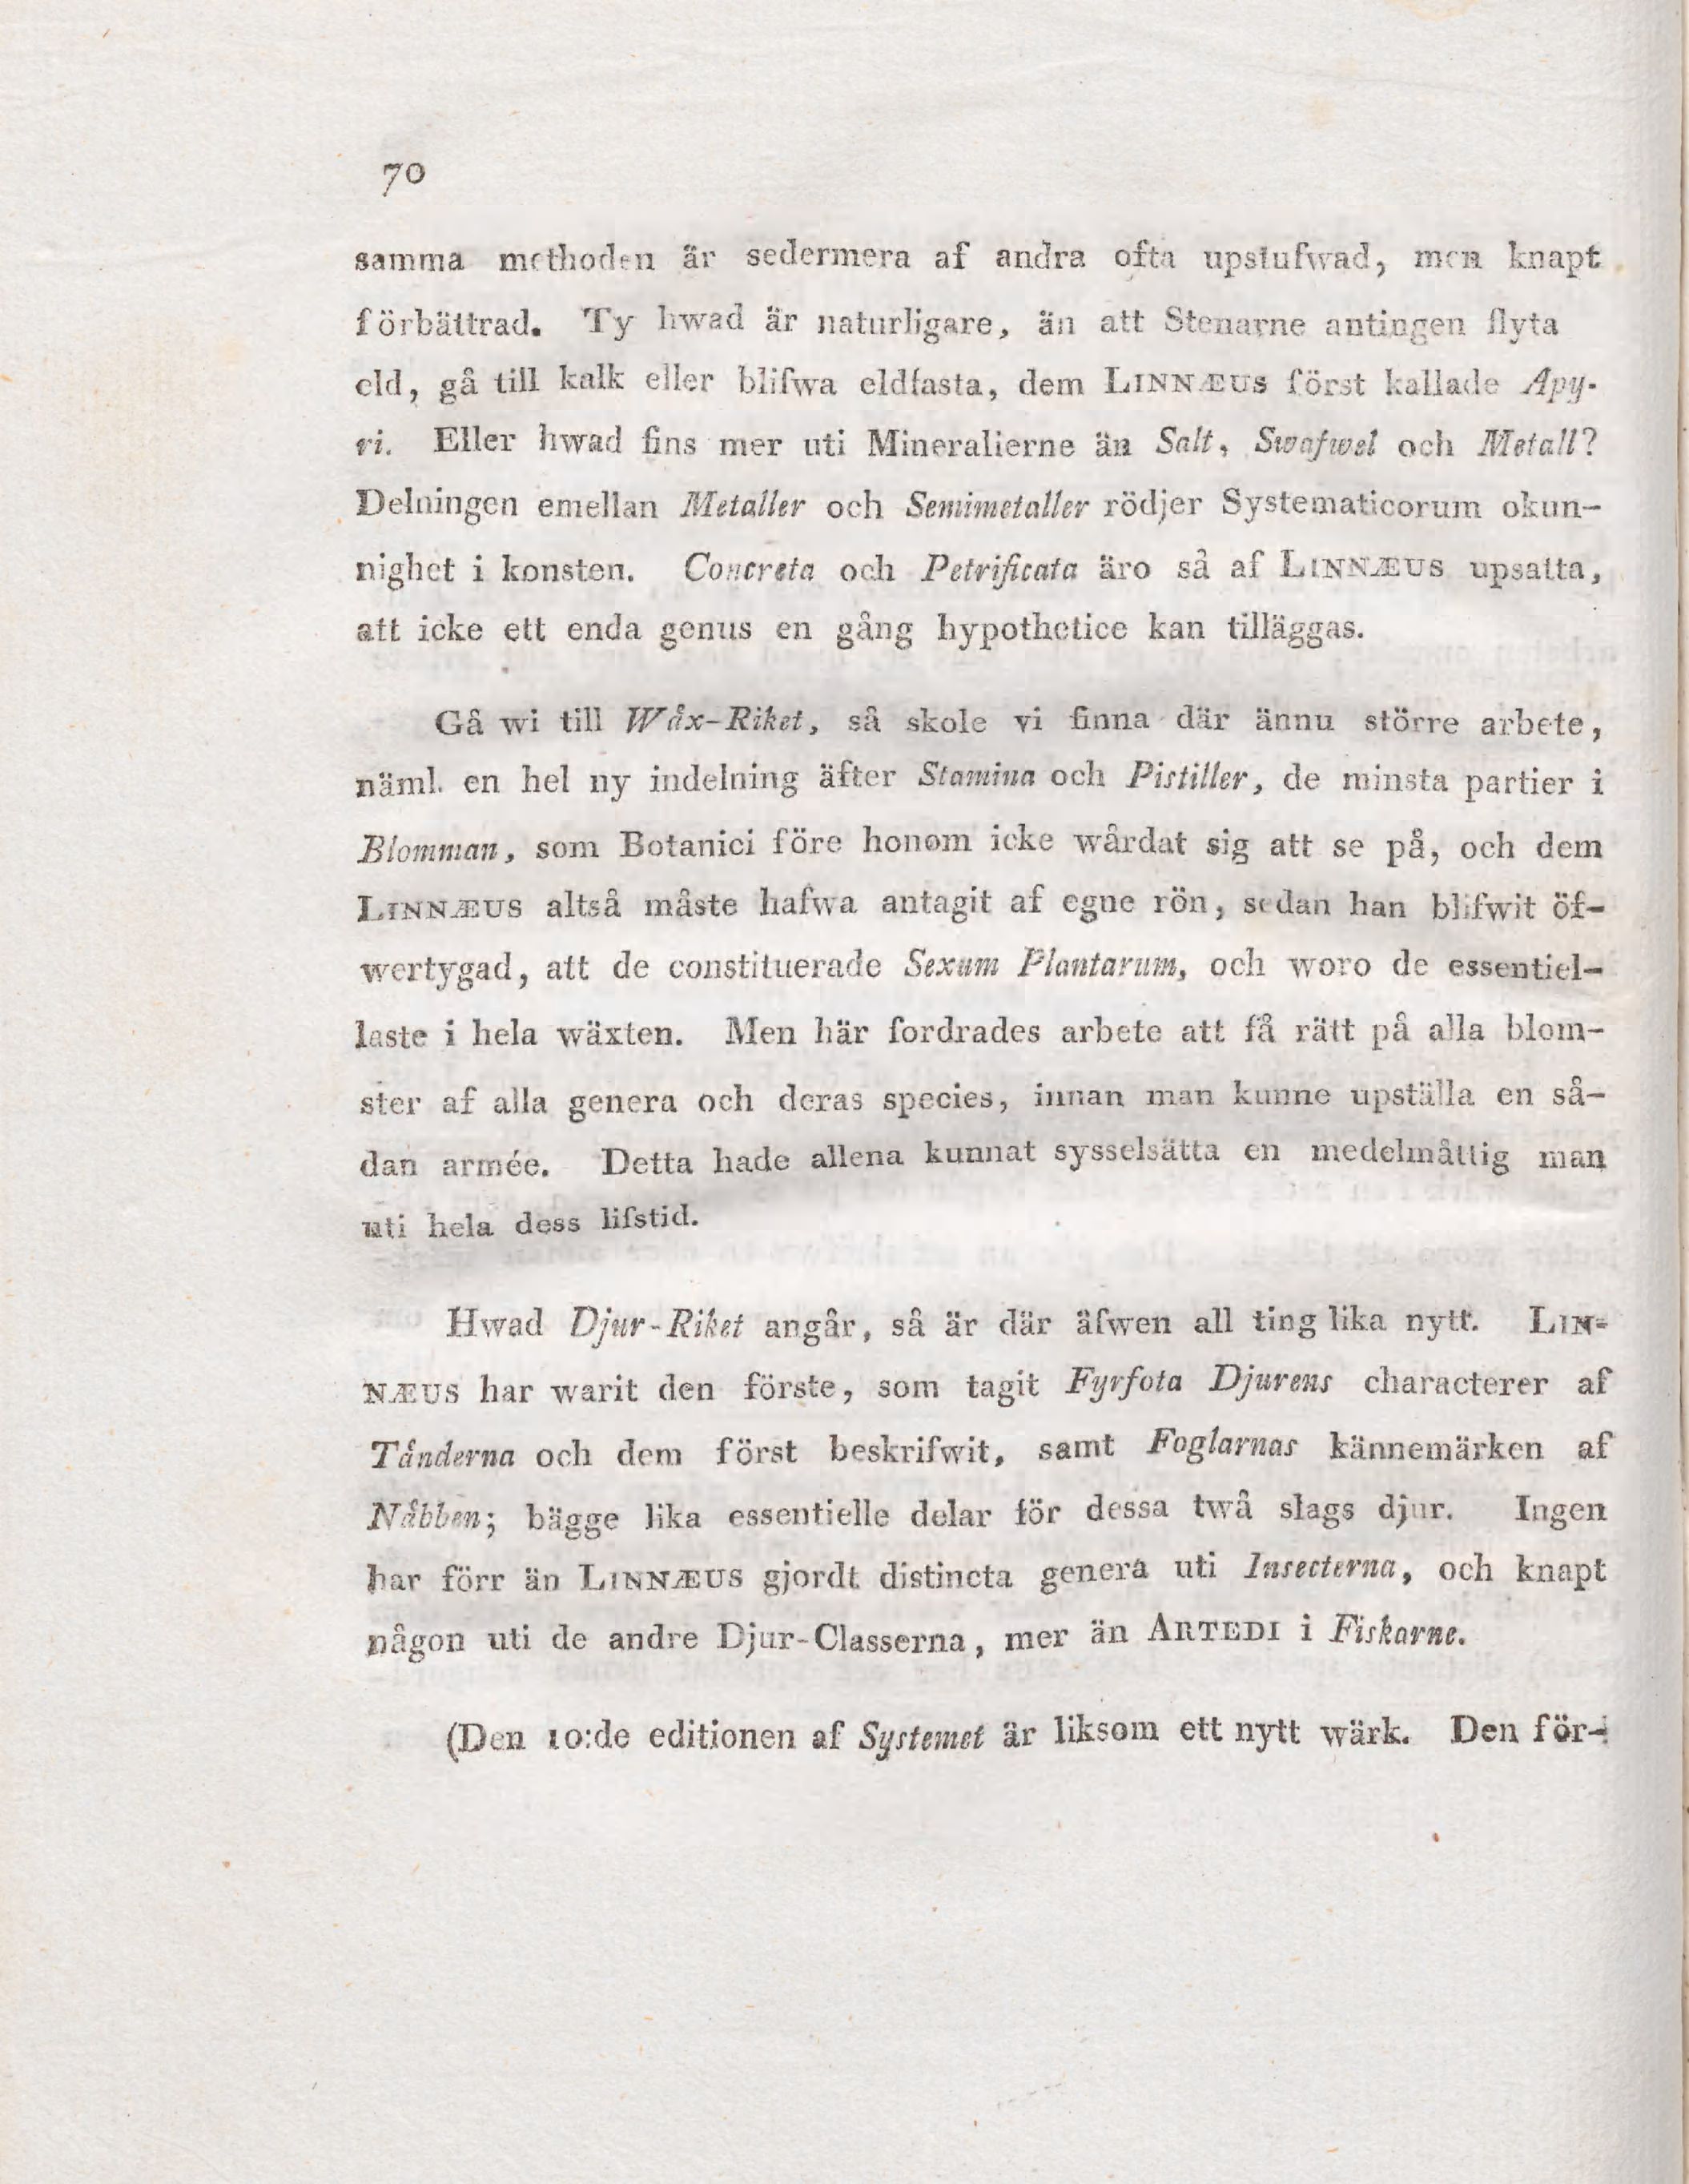 70
samma methoden är sedermera af andra ofta upstufwad, men knapt
förbättrad. Ty hwad är naturligare, än att Stenarne antingen flyta
eld, gå till kalk eller blifwa eldfasta, dem LINNÆUS först kallade Apy-
ri. Eller hwad fins mer uti Mineralierne än Salt, Swafwel och Metall?
Delningen emellan Metaller och Semimetaller rödjer Systematicorum okun-
nighet i konsten. Concreta och Petrificata äro så af LINNÆUS upsatta,
att icke ett enda genus en gång hypothetice kan tilläggas.
Gå wi till Wåx-Riket, så skole vi finna där ännu större arbete,
näml. en hel ny indelning äfter Stamina och Pistiller, de minsta partier i
Blomman, som Botanici före honom icke wårdat sig att se på, och dem
LINNÆUS altså måste hafwa antagit af egne rön, sedan han blifwit öf-
wertygad, att de constituerade Sexum Plantarum, och woro de essentiel-
laste i hela wäxten. Men här fordrades arbete att få rätt på alla blom-
ster af alla genera och deras species, innan man kunne upställa en så-
dan armée. Detta hade allena kunnat sysselsätta en medelmåttig man
uti hela dess lifstid.
Hwad Djur-Riket angår, så är där äfwen all ting lika nytt. LIN-
NÆUS har warit den förste, som tagit Fyrfota Djurens characterer af
Tånderna och dem först beskrifwit, samt Foglarnas kännemärken af
Nåbben; bägge lika essentielle delar för dessa twå slags djur. Ingen
har förr än LINNÆUS gjordt distincta genera uti Insecterna, och knapt
någon uti de andre Djur-Classerna, mer än ARTEDI i Fiskarne.
(Den 10:de editionen af Systemet är liksom ett nytt wärk. Den för-